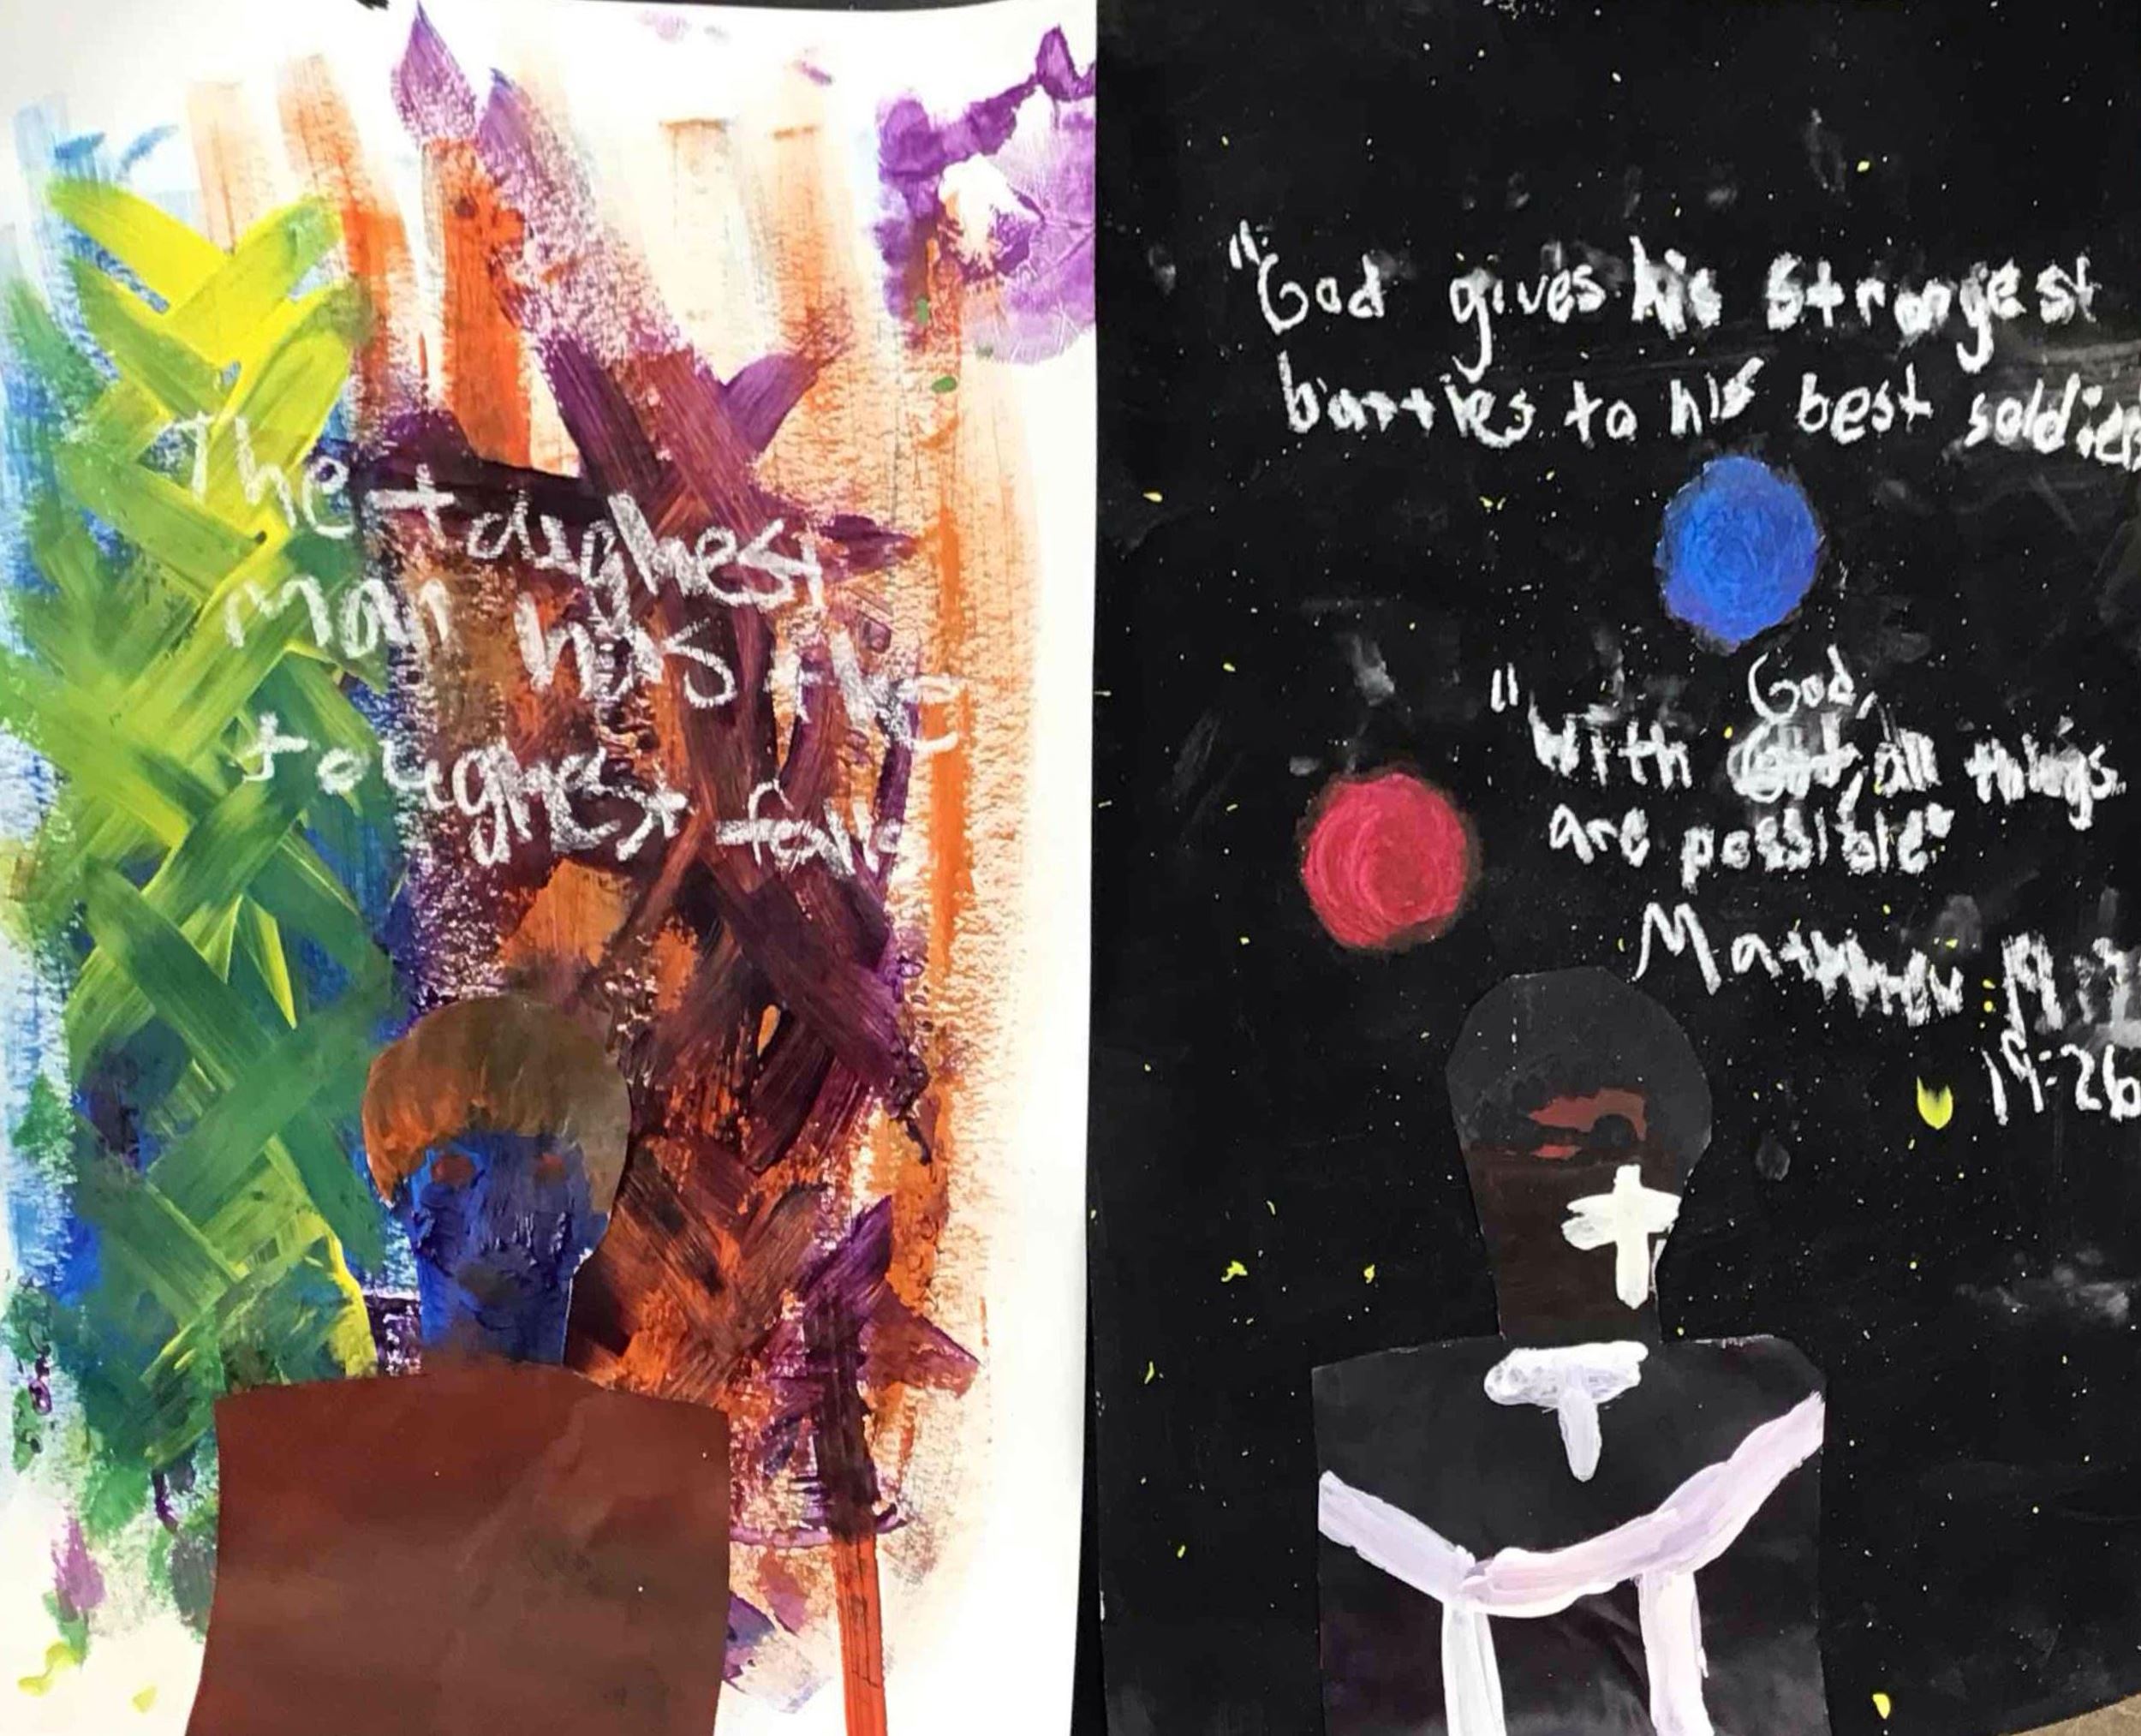 The toughest
man has the
toughest falls
"God gives his strongest
battles to his best soldiers
God,
"With all things
are possible"
Matthew 19:2
19:26